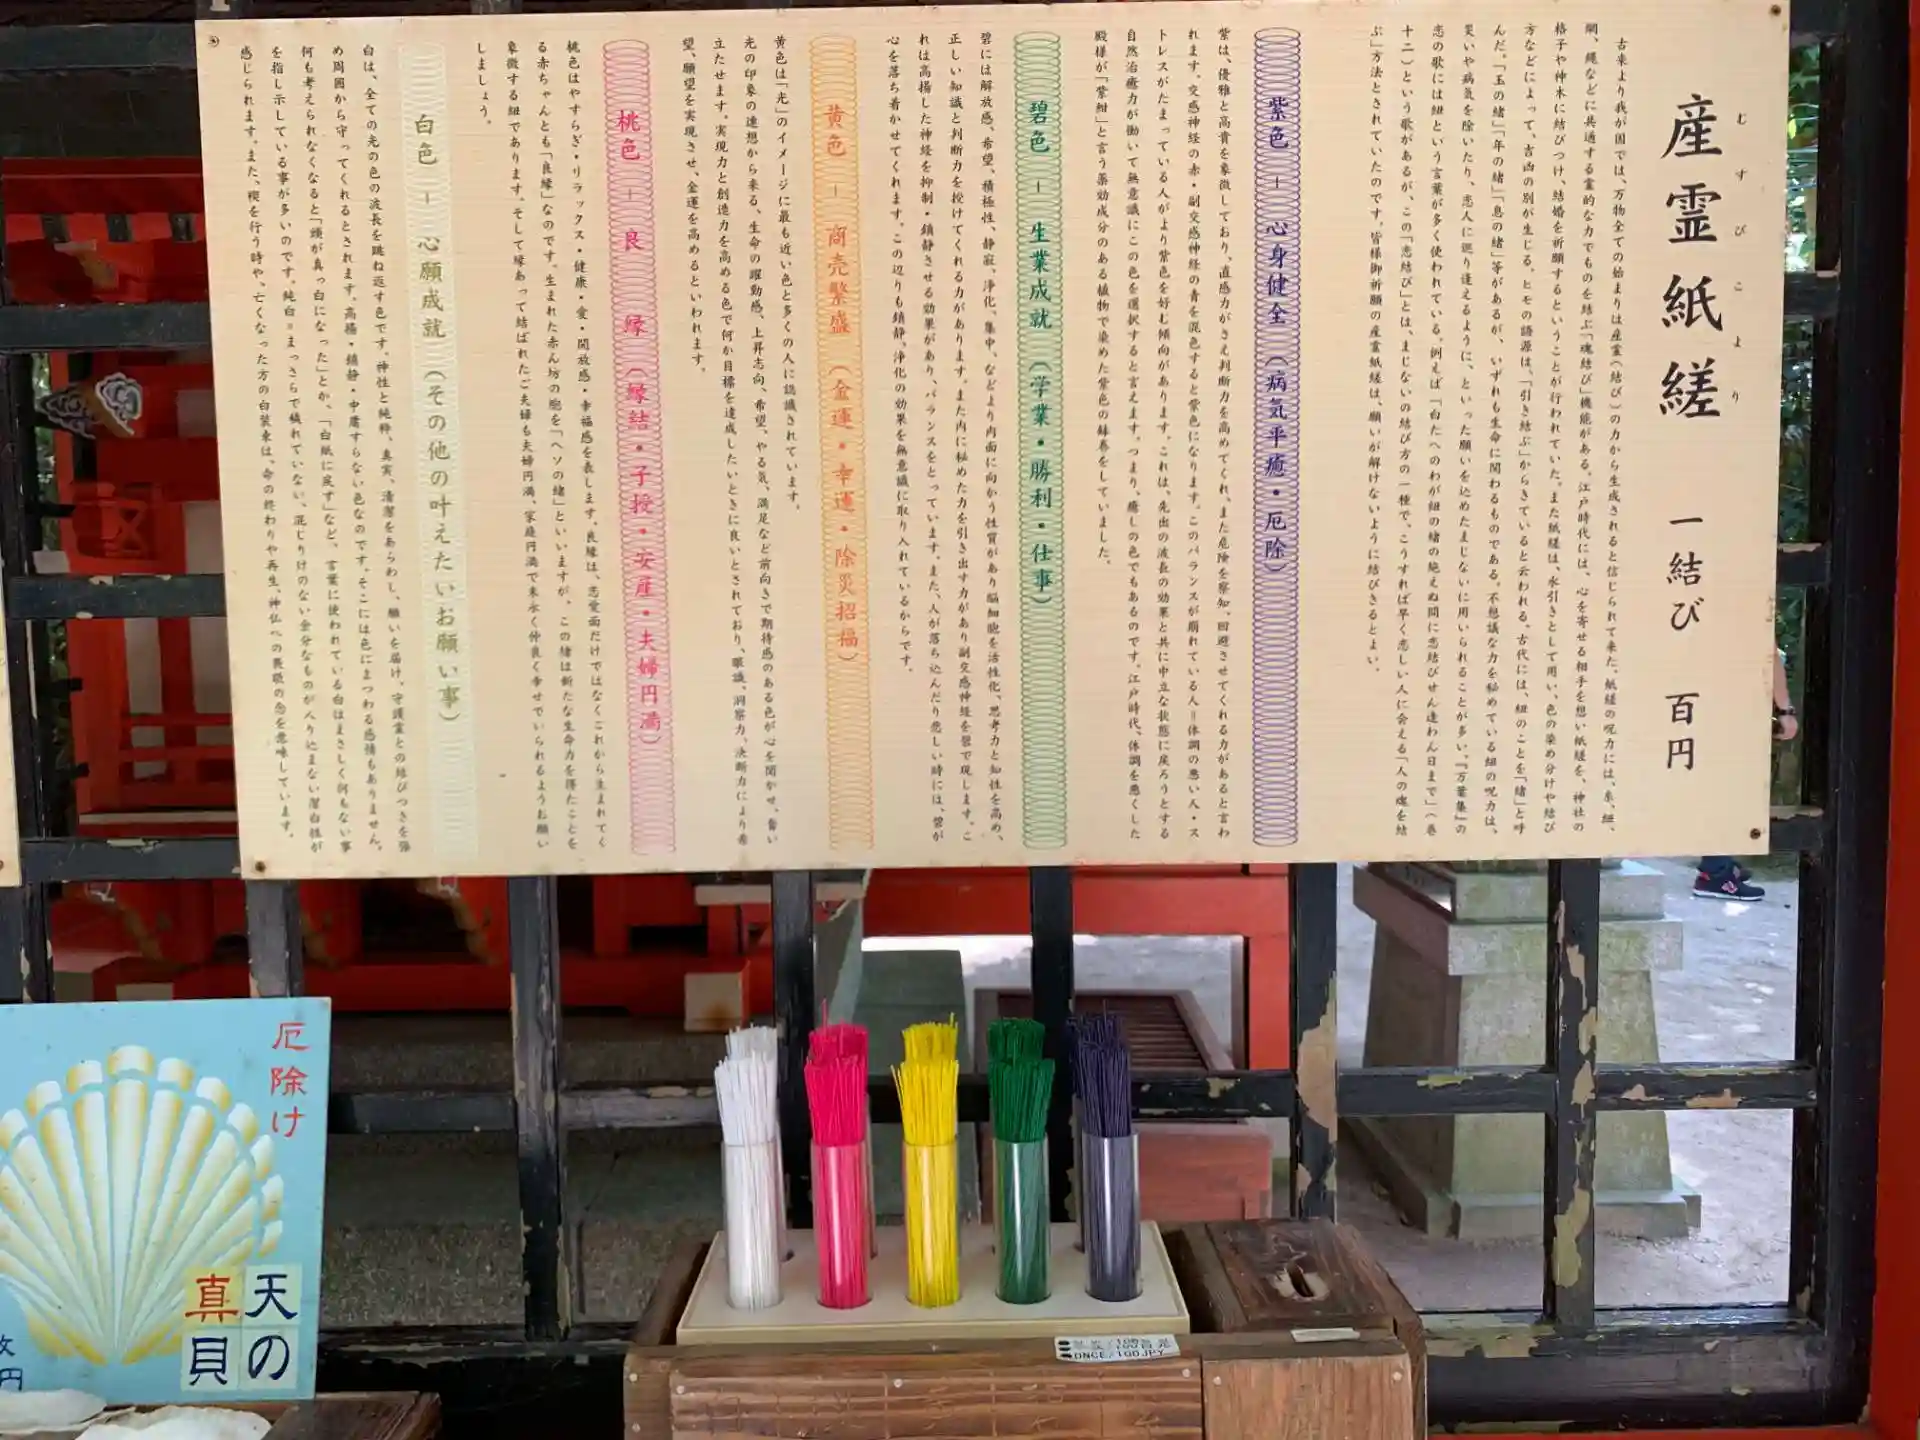 産霊紙縒　一結び　百円
むすびこより
古来より我が国では、万物全ての始まりは産霊(結び)の力から生成されると信じられて来た。紙縒の呪力には、糸、紐、
綱、縄などに共通する霊的な力でものを結ぶ「魂結び」機能がある。江戸時代には、心を寄せる相手を想い紙縒を、神社の
格子や神木に結びつけ、結婚を祈願するということが行われていた。また紙縒は、水引きとして用い、色の染め分けや結び
方などによって、吉凶の別が生じる。ヒモの語源は、「引き結ぶ」からきていると云われる。古代には、紐のことを「緒」と呼
んだ。「玉の緒」「年の緒」「息の緒」等があるが、いずれも生命に関わるものである。不思議な力を秘めている紐の呪力は、
災いや病気を除いたり、恋人に巡り逢えるように、といった願いを込めたまじないに用いられることが多い。『万葉集』の
恋の歌には紐という言葉が多く使われている。例えば「白たへのわが紐の緒の絶えぬ間に恋結びせん逢わん日まで」(巻
十二)という歌があるが、この「恋結び」とは、まじないの結び方の一種で、こうすれば早く恋しい人に会える「人の魂を結
ぶ」方法とされていたのです。皆様御祈願の産霊紙縒は、願いが解けないように結びきるとよい。
紫色 ― 心身健全 (病気平癒・厄除)
紫は、優雅と高貴を象徴しており、直感力がさえ判断力を高めてくれ、また危険を察知、回避させてくれる力があると言わ
れます。交感神経の赤・副交感神経の青を混色すると紫色になります。このバランスが崩れている人=体調の悪い人・ス
トレスがたまっている人がより紫色を好む傾向があります。これは、先出の波長の効果と共に中立な状態に戻ろうとする
自然治癒力が働いて無意識にこの色を選択すると言えます。つまり、癒しの色でもあるのです。江戸時代、体調を悪くした
殿様が「紫紺」と言う薬効成分のある植物で染めた紫色の鉢巻をしていました。
碧色 ― 生業成就 (学業・勝利・仕事)
碧には解放感、希望、積極性、静寂、浄化、集中、などより内面に向かう性質があり脳細胞を活性化、思考力と知性を高め、
正しい知識と判断力を授けてくれる力があります。また内に秘めた力を引き出す力があり副交感神経を碧で現します。こ
れは高揚した神経を抑制・鎮静させる効果があり、バランスをとっています。また、人が落ち込んだり悲しい時には、碧が
心を落ち着かせてくれます。この辺りも鎮静、浄化の効果を無意識に取り入れているからです。
黄色 ― 商売繁盛 (金運・幸運・除災招福)
黄色は「光」のイメージに最も近い色と多くの人に認識されています。
光の印象の連想から来る、生命の躍動感、上昇志向、希望、やる気、満足など前向きで期待感のある色が心を開かせ、奮い
立たせます。実現力と創造力を高める色で何か目標を達成したいときに良いとされており、眼識、洞察力、決断力により希
望、願望を実現させ、金運を高めるといわれます。
桃色 ― 良 縁 (縁結・子授・安産・夫婦円満)
桃色はやすらぎ・リラックス・健康・愛・開放感・幸福感を表します。良縁は、恋愛面だけではなくこれから生まれてく
る赤ちゃんとも「良縁」なのです。生まれた赤ん坊の胞を「ヘソの緒」といいますが、この緒は新たな生命力を得たことを
象徴する紐であります。そして縁あって結ばれたご夫婦も夫婦円満、家庭円満で末永く仲良く幸せでいられるようお願い
しましょう。
白色 ― 心願成就 (その他の叶えたいお願い事)
白は、全ての光の色の波長を跳ね返す色です。神性と純粋、真実、清潔をあらわし、願いを届け、守護霊との結びつきを強
め周囲から守ってくれるとされます。高揚・鎮静・中庸すらない色なのです。そこには色にまつわる感情もありません。
何も考えられなくなると「頭が真っ白になった」とか、「白紙に戻す」など、言葉に使われている白はまさしく何もない事
を指し示している事が多いのです。純白=まっさらで穢れていない、混じりけのない余分なものが入り込まない潔白性が
感じられます。また、禊を行う時や、亡くなった方の白装束は、命の終わりや再生、神仏への畏敬の念を意味しています。
厄除け
天の
真貝
円
ONCE/100JPY